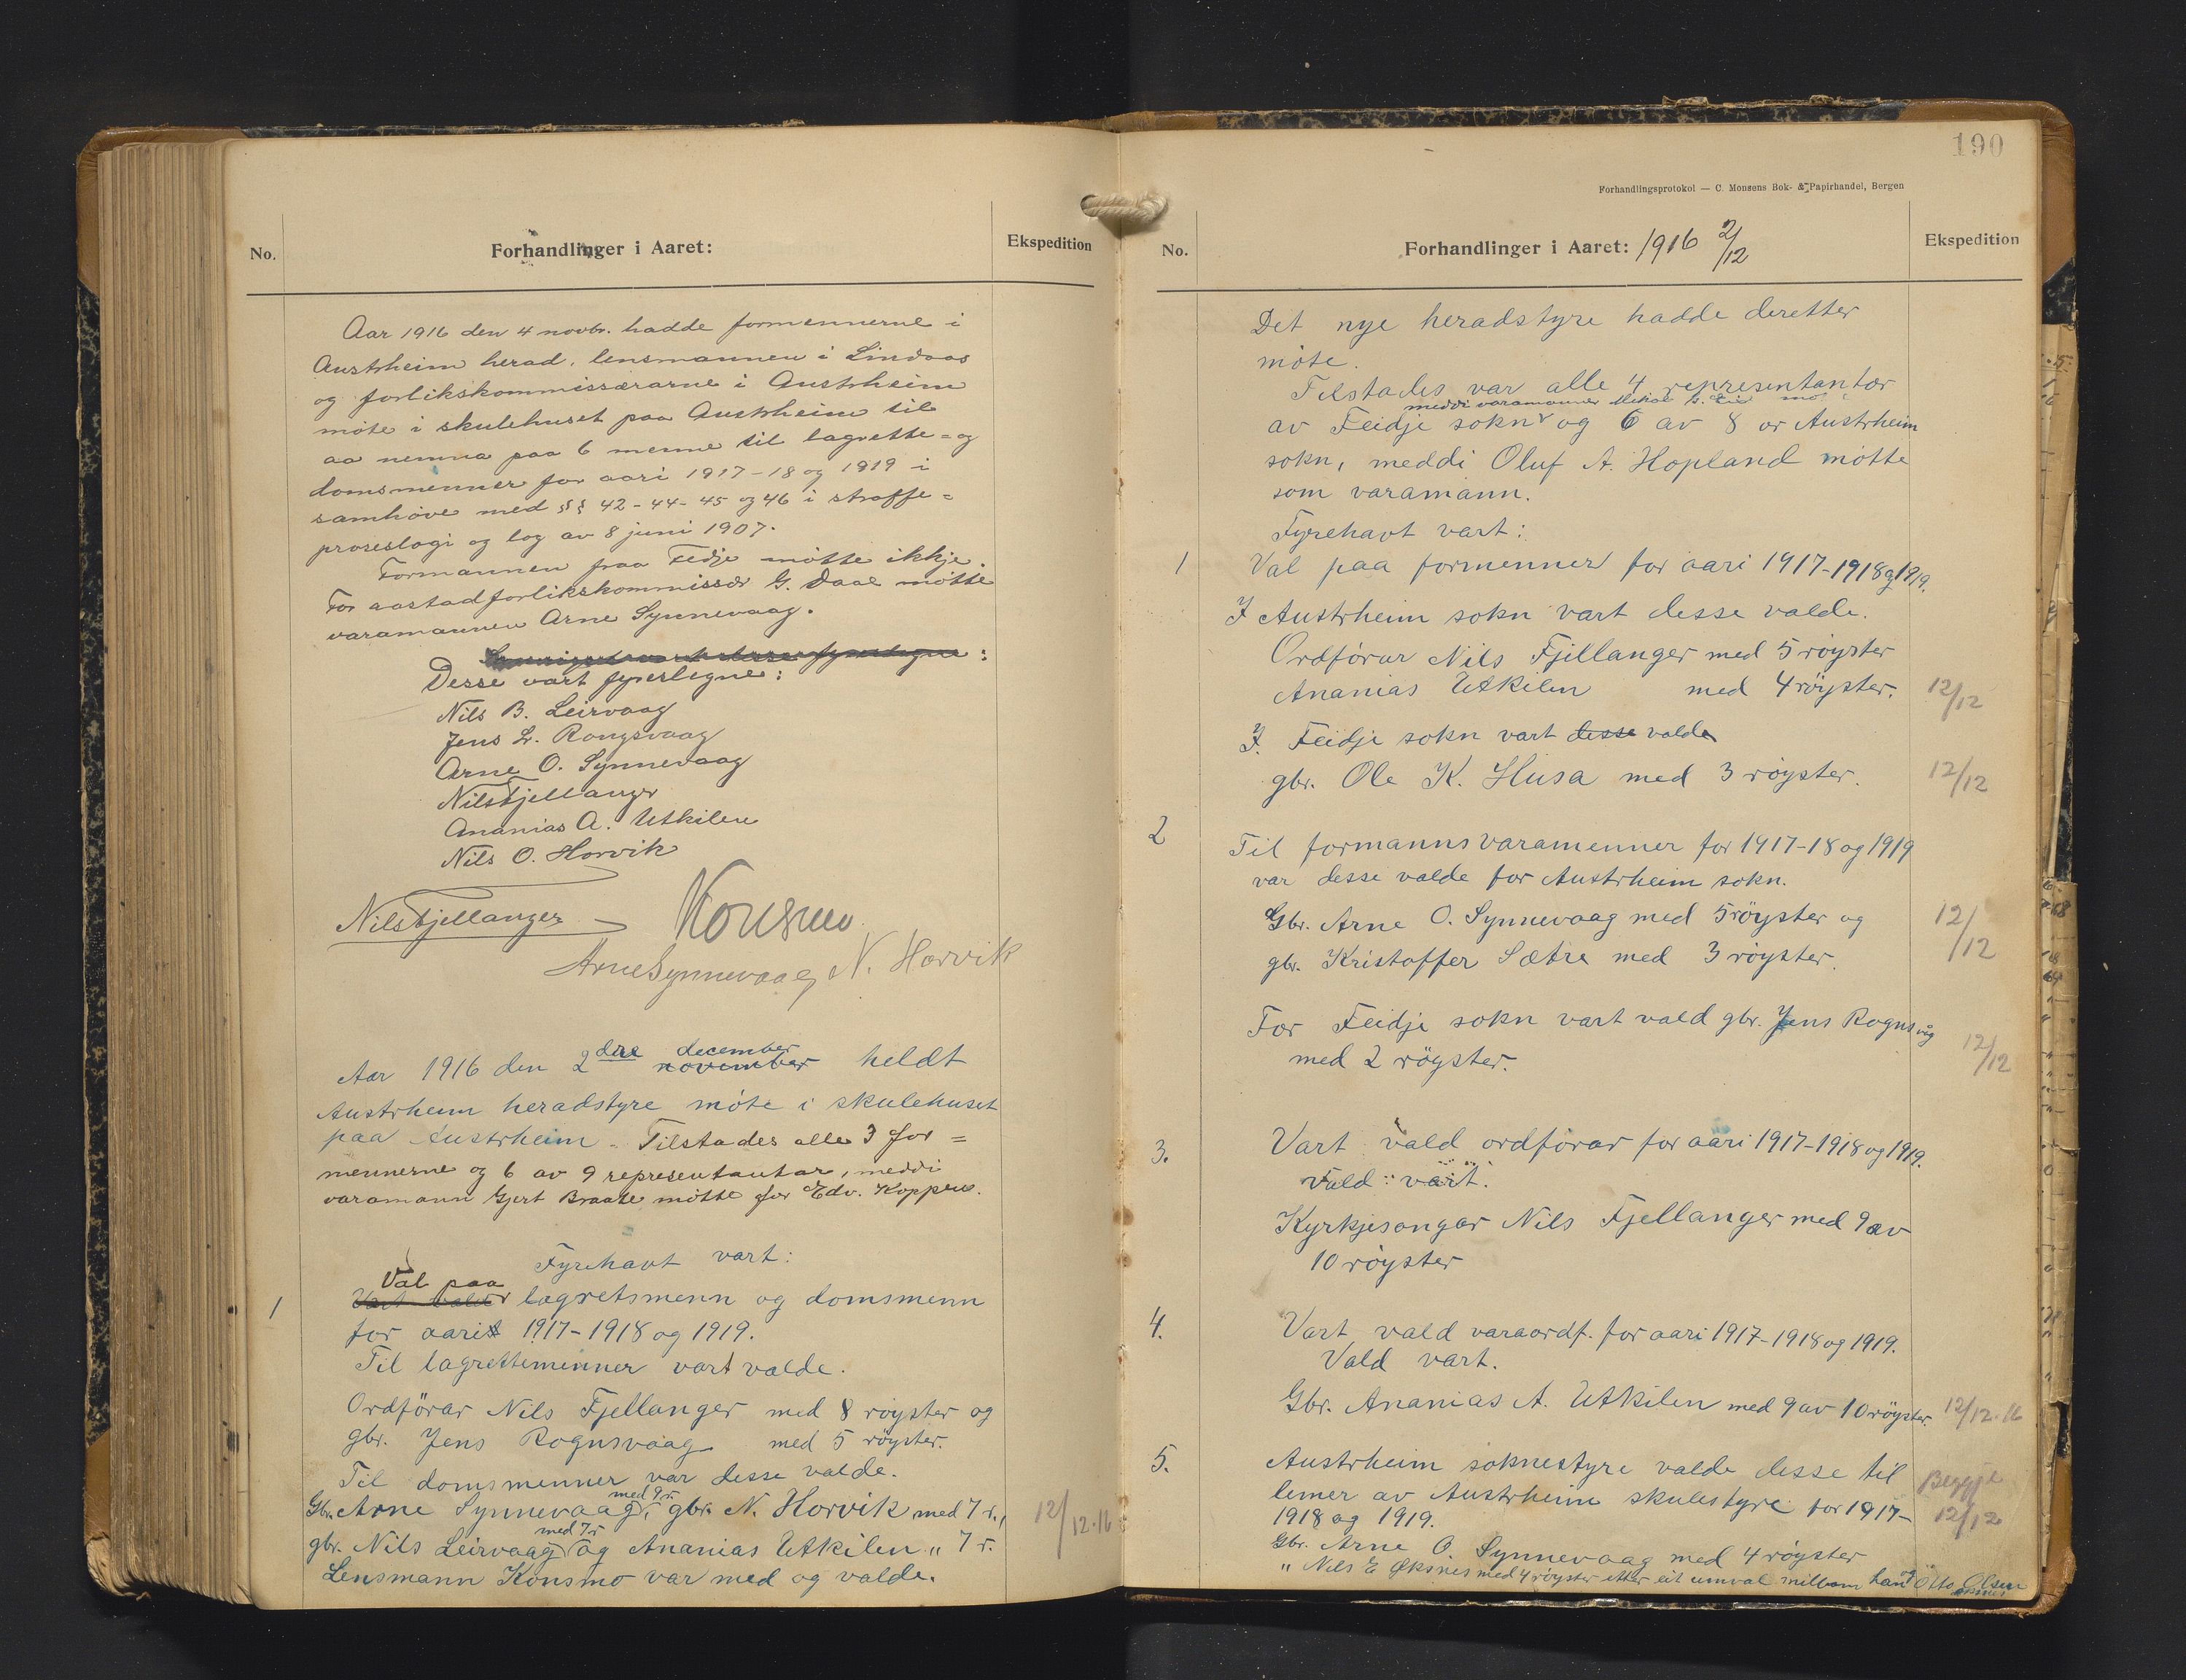 No.
Forhandlinger i Aaret:
Ekspedition
Aar 1916 den 4 novbr. hadde formennerne i
Austrheim herad, lensmannen i Lindaas
og forlikskommissærarne i Austrheim
møte i skulehuset paa Austrheim til
aa nemna paa 6 menne til lagrette= og
domsmenner for aari 1917-18 og 1919 i
samhøve med §§ 42-44-45 og 46 i straffe=
proseslogi og log av 8 juni 1907.
Formannen fraa Fedje møtte ikkje.
For aastadforlikskommissær G. Daae møtte
varamannen Arne Synnevaag.
Desse vart fyreslegne:
Nils B. Leirvaag
Jens L. Rongsvaag
Arne O. Synnevaag
Nils Fjellanger
Ananias A. Utkilen
Nils O. Horvik
Nils Fjellanger
Konsmo
Arne Synnevaag, N. Horvik
Aar 1916 den 2dre november december heldt
Austrheim heradstyre møte i skulehuset
paa Austrheim. Tilstades alle 3 for=
mennerne og 6 av 9 representantar, meddi
varamann Gjert Braate møtte for Edv. Koppen.
Fyrehavt vart:
1
Val paa
Vart valde lagretsmenn og domsmenn
for aari 1917-1918 og 1919.
Til lagrettemenner vart valde.
Ordförar Nils Fjellanger med 8 røyster og
gbr. Jens Rognsvaag med 5 røyster.
Til domsmenner var desse valde.
Gbr. Arne Synnevaag med 9 r., gbr. N. Horvik med 7 r.,
gbr. Nils Leirvaag med 7 r og Ananias Utkilen " 7 r.
12/12.16
Lensmann Konsmo var med og valde.
190
Forhandlingsprotokol — C. Monsens Bok- & Papirhandel, Bergen
No.
Forhandlinger i Aaret: 1916 2/12
Ekspedition
Det nye heradstyre hadde deretter
møte.
Tilstades var alle 4 representantar
meddi varamann
av Feidje sokn og 6 av 8 or Austrheim
sokn, meddi Oluf A. Hopland møtte
som varamann.
Fyrehavt vart:
1
Val paa formenner for aari 1917-1918 og 1919.
I Austrheim sokn vart desse valde.
Ordförar Nils Fjellanger med 5 røyster
Ananias Utkilen med 4 røyster.
12/12
I Feidje sokn vart desse valde
gbr. Ole K. Husa med 3 røyster.
12/12
2
Til formannsvaramenner for 1917-18 og 1919
var desse valde for Austrheim sokn.
Gbr. Arne O. Synnevaag med 5 røyster og
gbr. Kristoffer Sætre med 3 røyster.
12/12
For Feidje sokn vart vald gbr. Jens Rognsvåg
med 2 röyster.
12/12
3.
Vart vald ordførar for aari 1917-1918 og 1919.
Vald vart.
Kyrkjesongar Nils Fjellanger med 9 av
10 røyster
4.
Vart vald varaordf. for aari 1917-1918 og 1919.
Vald vart.
Gbr. Ananias A. Utkilen med 9 av 10 røyster.
12/12.16
5.
Austrheim soknestyre valde desse til
lemer av Austrheim skulestyre for 1917-
1918 og 1919.
Begge
12/12
Gbr. Arne O. Synnevaag med 4 røyster
" Nils E Øksnes med 4 røyster etter eit umval millom han og Otto Olsen